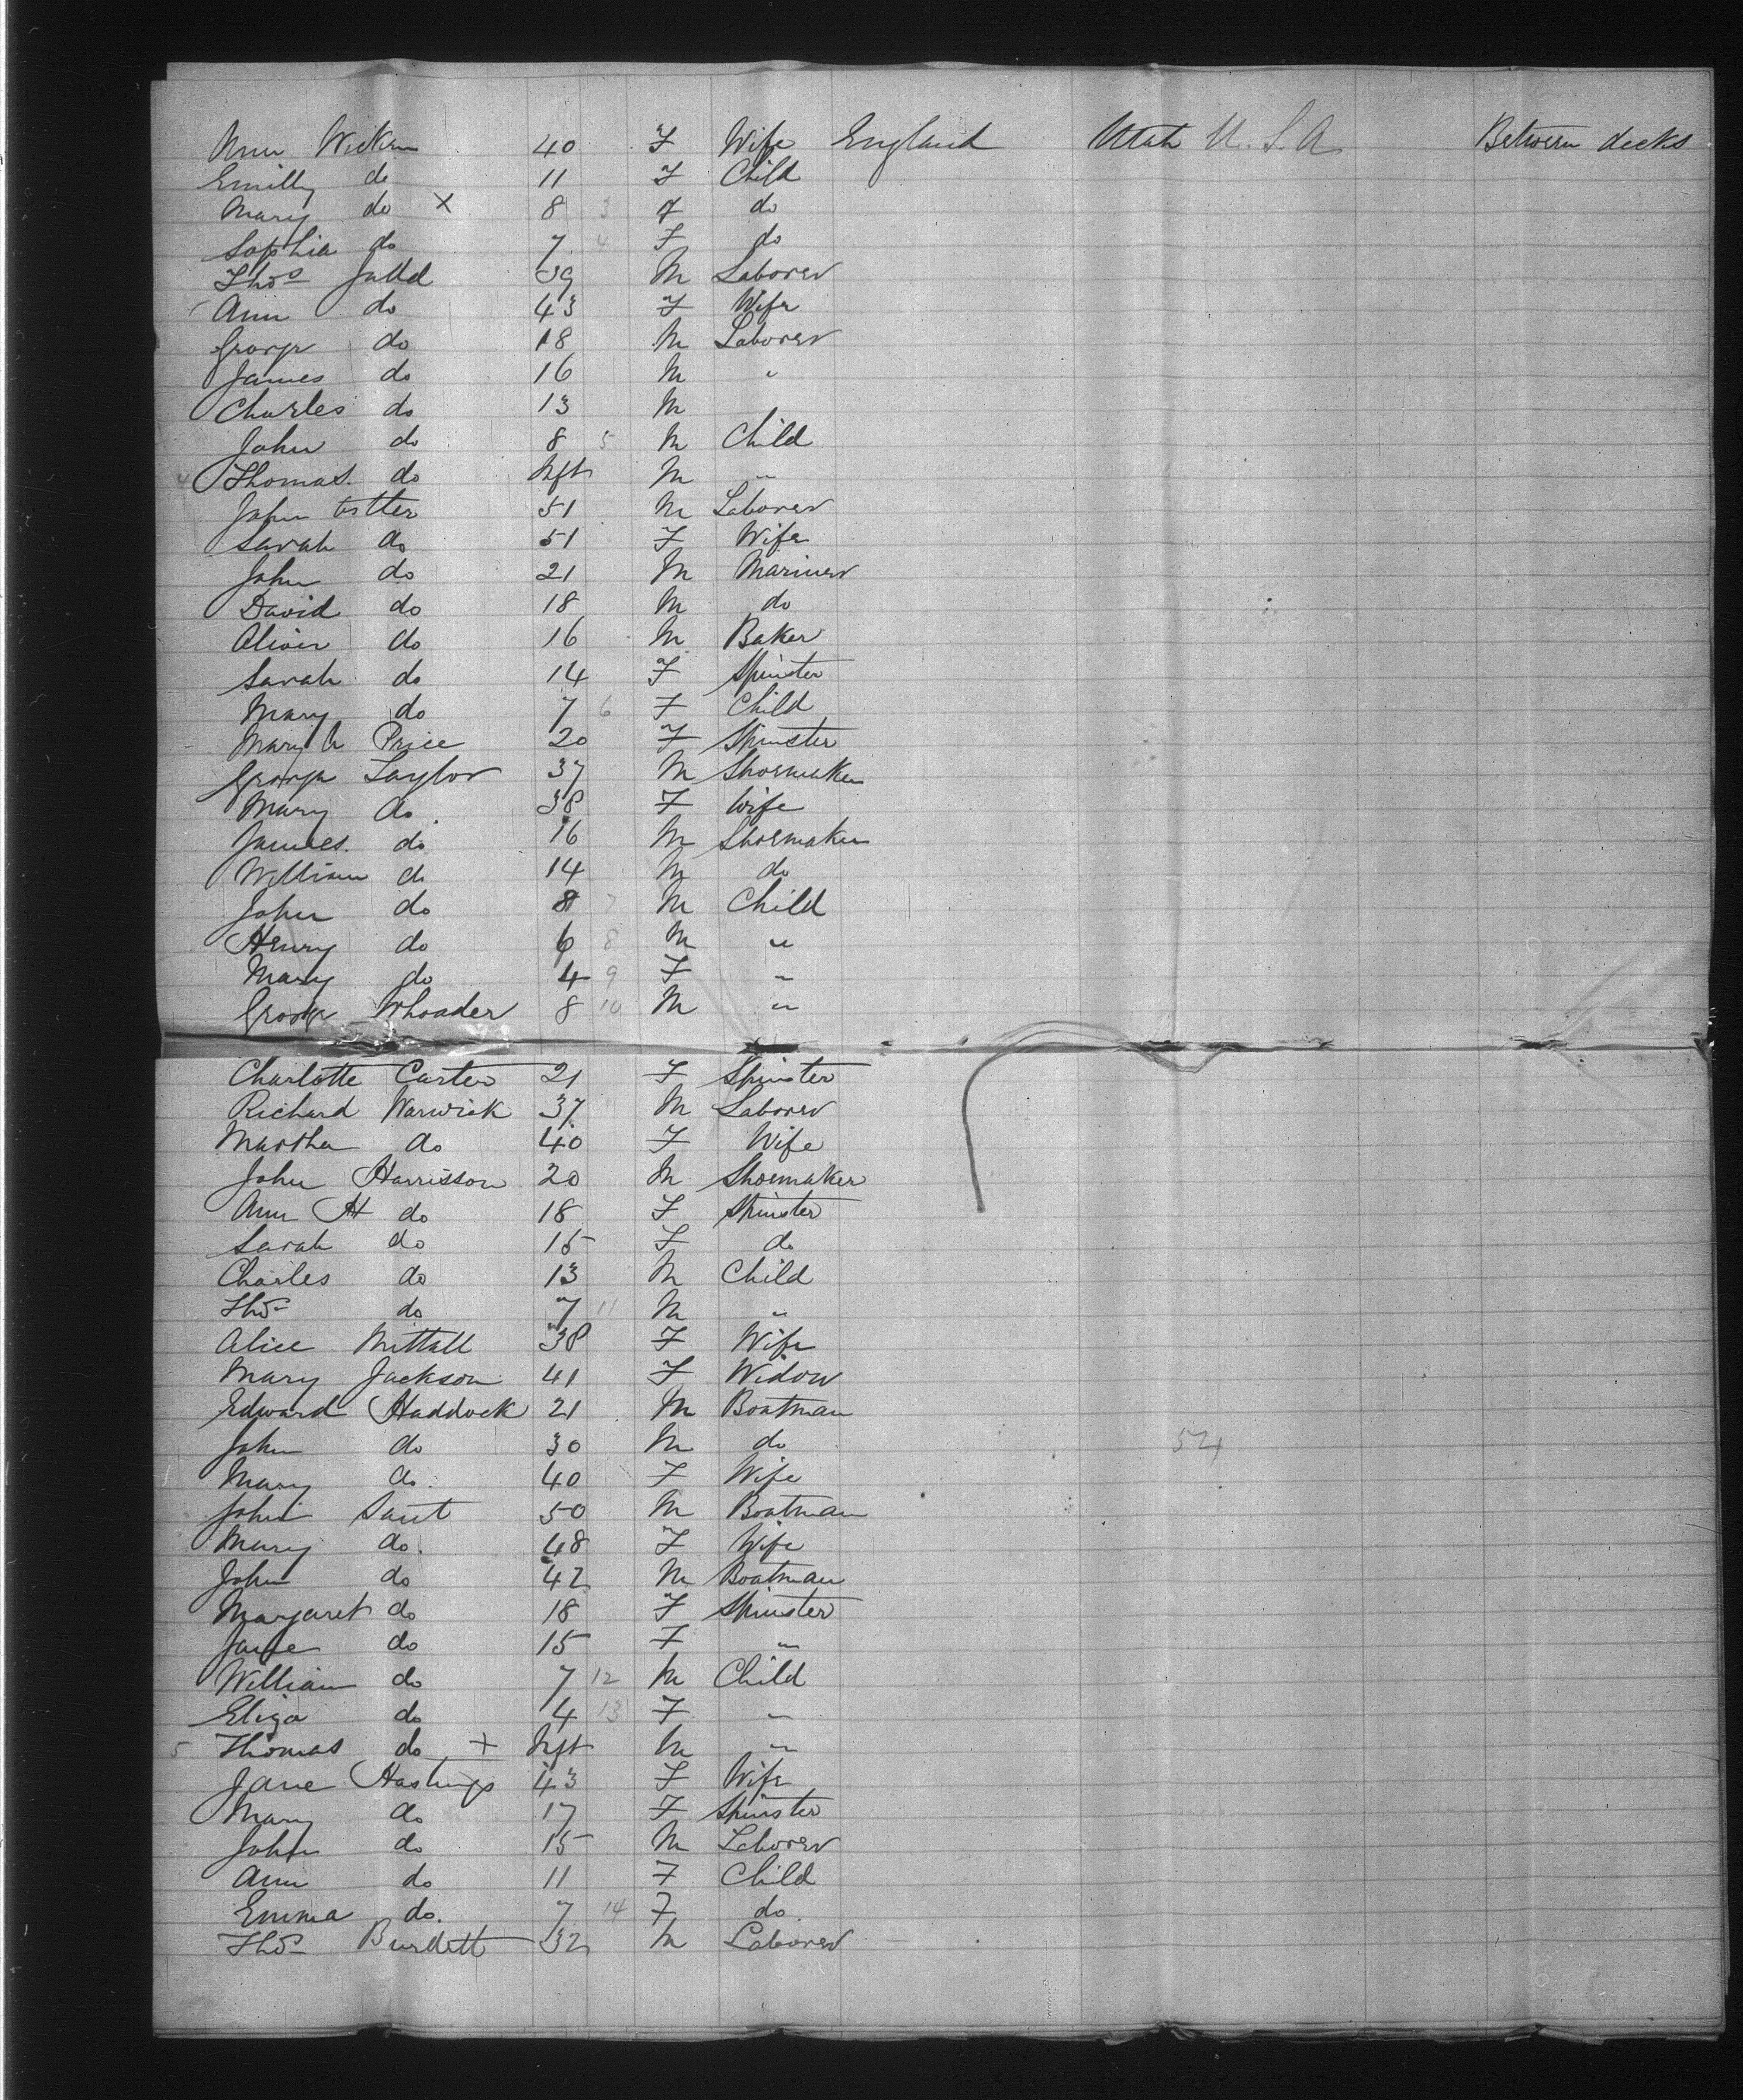 Ann Wickens 40 F Wife England Utah U.S.A Between decks
Emilly do 11 F Child
Mary do X 8 3 F do
Sophia do 7 4 F do
Thos Judd 39 M Laborer
Ann do 43 F Wife
George do 18 M Laborer
James do 16 M "
Charles do 13 M
John do 8 5 M Child
4 Thomas do Inft M "
John 51 M Laborer
Sarah do 51 F Wife
John do 21 M Mariner
David do 18 M do
Oliver do 16 M Baker
Sarah do 14 F Spinster
Mary do 7 6 F Child
Mary A Price 20 F Spinster
George Taylor 37 M Shoemaker
Mary do 38 F Wife
James do 16 M Shoemaker
William do 14 M do
John do 8 7 M Child
Henry do 6 8 M "
Mary do 4 9 F "
George Rhoader 8 10 M "
Charlotte Carter 21 F Spinster
Richard Warwick 37 M Laborer
Martha do 40 F Wife
John Harrisson 20 M Shoemaker
Ann H do 18 F Spinster
Sarah do 15 F do
Charles do 13 M Child
Thos do 7 11 M "
Alice Nuttall 38 F Wife
Mary Jackson 41 F Widow
Edward Haddock 21 M Boatman
John do 30 M do 54
Mary do 40 F Wife
John Sant 50 M Boatman
Mary do 48 F Wife
John do 42 M Boatman
Margaret do 18 F Spinster
Jane do 15 F "
William do 7 12 M Child
Eliza do 4 13 F "
5 Thomas do X Inft M "
Jane Hastings 43 F Wife
Mary do 17 F Spinster
John do 15 M Laborer
Ann do 11 F Child
Emma do. 7 14 F do
Thos Burdett 32 M Laborer